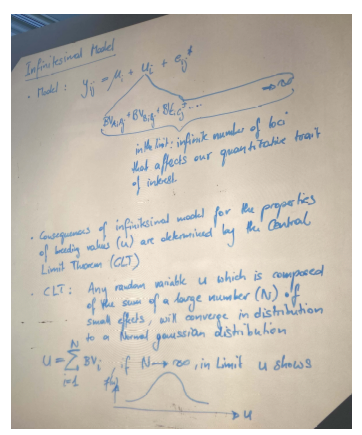 Infinitesimal Model
• Model: yij = μi + ui + eij*
BVAi,j + BVBi,j + BVC,j + .... → ∞
in the limit: infinite number of loci
that affects our quantitative trait
of interest.
• Consequences of infinitesimal model for the properties
of breeding values (u) are determined by the Central
Limit Theorem (CLT)
• CLT: Any random variable u which is composed
of the sum of a large number (N) of
small effects, will converge in distribution
to a Normal gaussian distribution
U = N∑i=1 BVi if N → ∞, in limit u shows
u